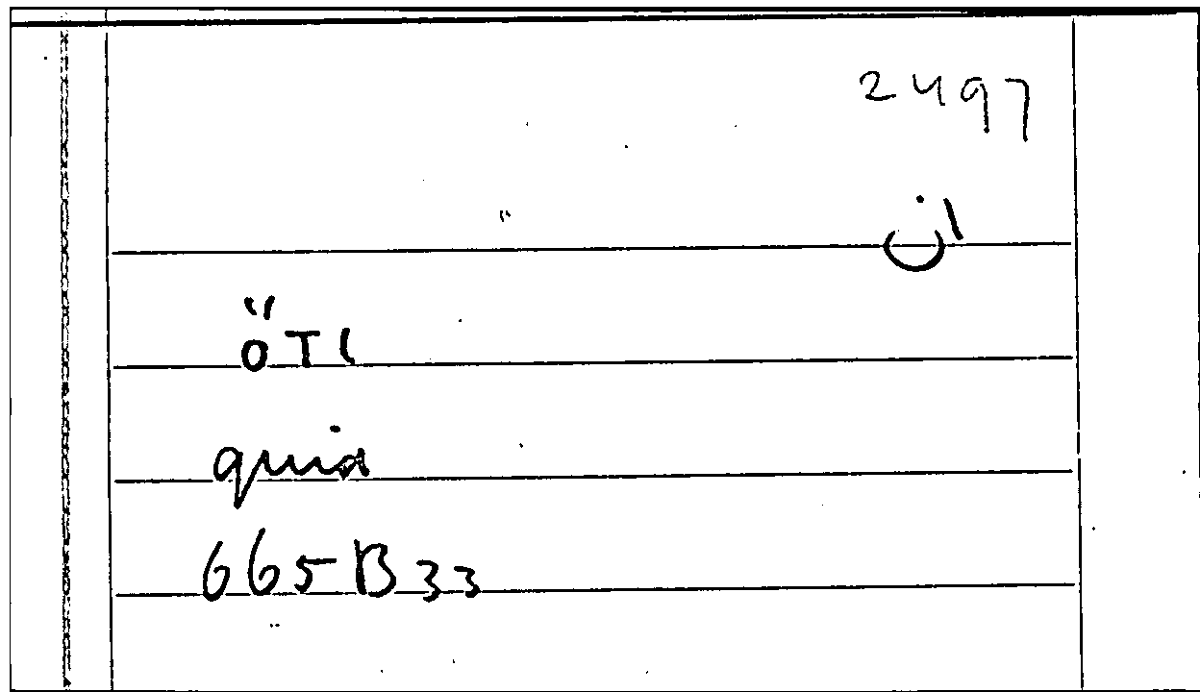 2497
ان
ὅτι
quia
665B33